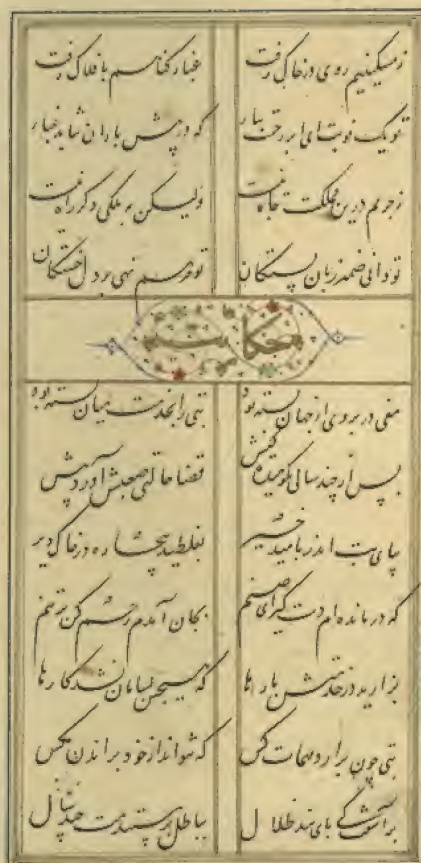 زمسکینیم روی در خاک رفت غبار گناهم بافلاک رفت
تو یک نوبت ای ابر رحمت ببار که در پیش باران نپاید غبار
ز جرمم درین مملکت جاه نیست ولیکن بملکی دگر راه نیست
تو دانی ضمیر زبان بستگان تو مرهم نهی بر دل خستگان
حکایت
مغی در بروی از جهان بسته بود بتی را بخدمت میان بسته بود
پس از چند سال آن نکوهیده کیش قضا حالتی صعبش آورد پیش
بپای بت اندر بامید خیر بغلطید بیچاره در خاک دیر
که درمانده‌ام دست گیر ای صنم بجان آمدم رحم کن بر تنم
بزارید در خدمتش بارها که هیچش بسامان نشد کارها
بتی چون برآرد مهمات کس که نتواند از خود براندن مگس
برآشفت کای پای‌بند ضلال بباطل پرستیدمت چند سال